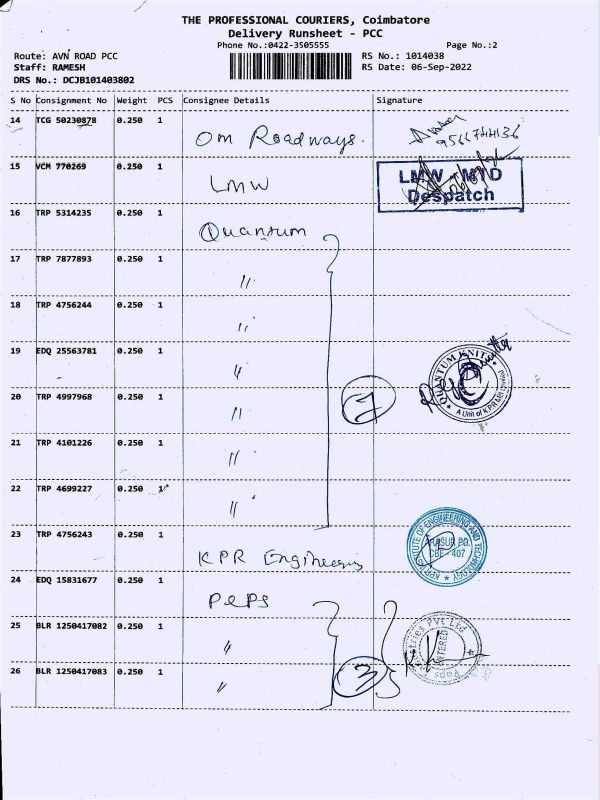 THE PROFESSIONAL COURIERS, Coimbatore
Delivery Runsheet - PCC
Phone No.:0422-3505555
Page No.:2
Route: AVN ROAD PCC
RS No.: 1014038
Staff: RAMESH
RS Date: 06-Sep-2022
DRS No.: DCJB101403802
S No Consignment No Weight PCS Consignee Details Signature
14 TCG 50230878 0.250 1 Om Roadways. 9566744136
15 VCM 770269 0.250 1 LMW LMW - MTD
Despatch
16 TRP 5314235 0.250 1 Quantum
17 TRP 7877893 0.250 1 〃
18 TRP 4756244 0.250 1 〃
19 EDQ 25563781 0.250 1 〃 QUANTUM KNITS
A Unit of K.P.R Mill
20 TRP 4997968 0.250 1 〃 7
21 TRP 4101226 0.250 1 〃
22 TRP 4699227 0.250 1 〃
23 TRP 4756243 0.250 1 KPR Engineers KPR INSTITUTE OF ENGINEERING AND TECHNOLOGY
ARASUR PO.
CBE - 407
24 EDQ 15831677 0.250 1 PePs
25 BLR 1250417082 0.250 1 〃 Pvt Ltd
26 BLR 1250417083 0.250 1 〃 3